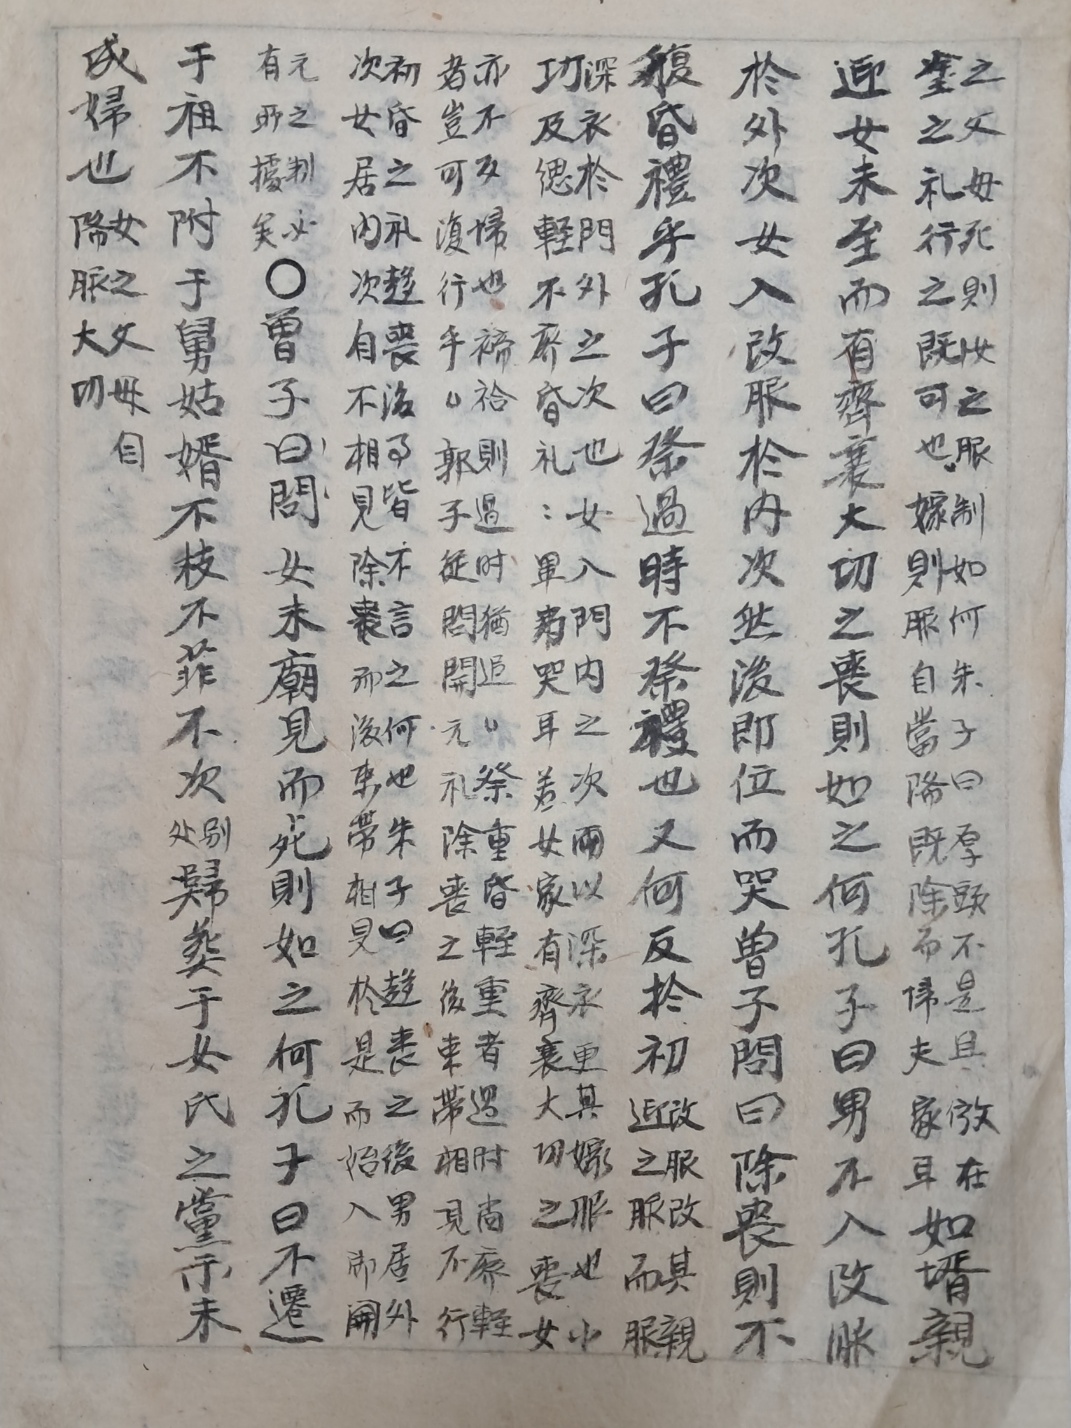 之父母死則女之服制如何朱子曰厚頭不是具放在
塗之礼行之既可也嫁則服自當降既除而帰夫家耳如壻親
迎女未至而有齊衰大功之喪則如之何孔子曰男不入改服
於外次女入改服於内次然後即位而哭曾子問曰除喪則不
復昏禮乎孔子曰祭過時不祭禮也又何反於初改服改其親
迎之服而服
深衣於門外之次也女入門内之次而以深衣更其嫁服也小
功及緦輕不廃昏礼〻畢為哭耳若女家有齊衰大功之喪女
亦不反帰也禘祫則過时猶追〃祭重昏輕重者過时尚廃輕
者豈可復行乎〃郭子從問開元礼除喪之後束帶相見不行
初昏之礼趍喪後事皆不言之何也朱子曰趍喪之後男居外
次女居内次自不相見除喪而後束帶相見於是而始入御開
元之制必
有所據矣〇曾子曰問女未廟見而死則如之何孔子曰不遷
于祖不附于舅姑壻不杖不菲不次別处歸葬于女氏之黨示未
成婦也女之父母自
降服大功